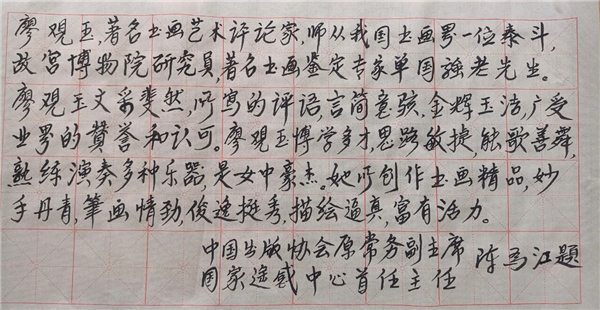 廖观玉,著名书画艺术评论家,师从我国书画界一位泰斗,
故宫博物院研究员,著名书画鉴定专家单国强老先生。
廖观玉文采斐然,所写的评语,言简意骇,金辉玉洁,广受
业界的赞誉和认可。廖观玉博学多才,思路敏捷,能歌善舞,
熟练演奏多种乐器,是女中豪杰。她所创作书画精品,妙
手丹青,筆画,情劲,俊逸挺秀,描绘逼真,富有活力。
中国出版协会原常务副主席
国家遥感中心首任主任 陈为江题